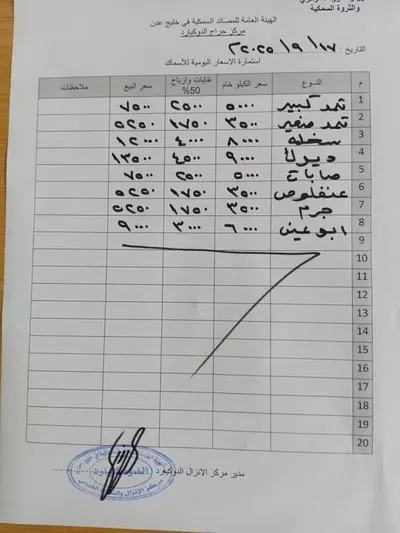 والثروة السمكية
الهيئة العامة للمصائد السمكية في خليج عدن
مركز حراج الدوكيارد
التاريخ : ١٧ / ٩ / ٢٠٢٥
استمارة الاسعار اليومية للأسماك
م النوع سعر الكيلو خام نفليات وارباح 50% سعر البيع ملاحظات
1 ثمد كبير ٥٠٠٠ ٢٥٠٠ ٧٥٠٠
2 ثمد صغير ٣٥٠٠ ١٧٥٠ ٥٢٥٠
3 سخله ٨٠٠٠ ٤٠٠٠ ١٢٠٠٠
4 ديرك ٩٠٠٠ ٤٥٠٠ ١٣٥٠٠
5 ٥٠٠٠ ٢٥٠٠ ٧٥٠٠
6 عنفلوص ٣٥٠٠ ١٧٥٠ ٥٢٥٠
7 جرم ٣٥٠٠ ١٧٥٠ ٥٢٥٠
8 ابو عين ٦٠٠٠ ٣٠٠٠ ٩٠٠٠
9
10
11
12
13
14
15
16
17
18
19
20
مدير مركز الانزال الدوكيارد